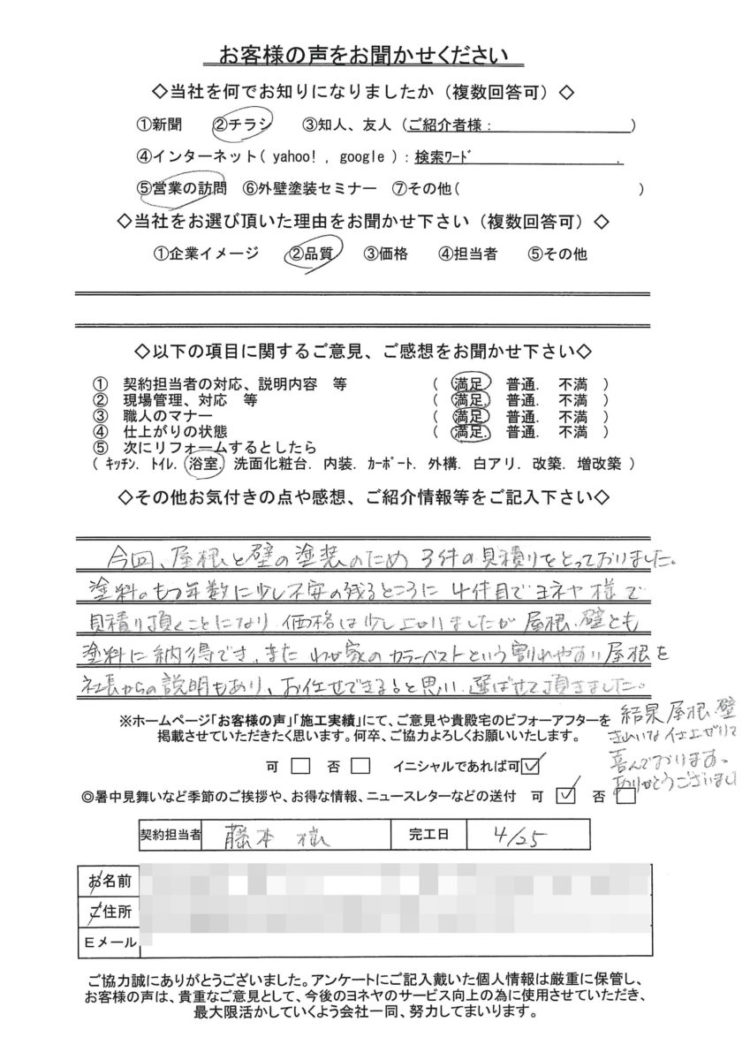 お客様の声をお聞かせください
◇当社を何でお知りになりましたか（複数回答可）◇
①新聞 ②チラシ ③知人、友人（ご紹介者様： ）
④インターネット( yahoo! , google )：検索ﾜｰﾄﾞ .
⑤営業の訪問 ⑥外壁塗装セミナー ⑦その他( )
◇当社をお選び頂いた理由をお聞かせ下さい（複数回答可）◇
①企業イメージ ②品質 ③価格 ④担当者 ⑤その他
◇以下の項目に関するご意見、ご感想をお聞かせ下さい◇
① 契約担当者の対応、説明内容 等 （ 満足. 普通. 不満 ）
② 現場管理、対応 等 （ 満足. 普通. 不満 ）
③ 職人のマナー （ 満足. 普通. 不満 ）
④ 仕上がりの状態 （ 満足. 普通. 不満 ）
⑤ 次にリフォームするとしたら
（ ｷｯﾁﾝ. ﾄｲﾚ. 浴室. 洗面化粧台. 内装. ｶｰﾎﾟｰﾄ. 外構. 白アリ. 改築. 増改築 ）
◇その他お気付きの点や感想、ご紹介情報等をご記入下さい◇
今回、屋根と壁の塗装のため 3件の見積りをとっておりました。
塗料のもつ年数に少し不安の残るところに 4件目でヨネヤ様で
見積り頂くことになり 価格は少し上がりましたが 屋根、壁とも
塗料に納得でき、また わが家のカラーベストという割れやすい屋根を
社長からの説明もあり、お任せできると思い 選ばせて頂きました。
結果屋根壁
きれいな仕上がりで
喜んでおります。
ありがとうございまし
※ホームページ「お客様の声」「施工実績」にて、ご意見や貴殿宅のビフォーアフターを
掲載させていただきたく思います。何卒、ご協力よろしくお願いいたします。
可 □ 否 □ イニシャルであれば可☑
◎暑中見舞いなど季節のご挨拶や、お得な情報、ニュースレターなどの送付 可 ☑ 否 □
契約担当者 藤本 様 完工日 4/25
お名前
ご住所
Ｅメール
ご協力誠にありがとうございました。アンケートにご記入戴いた個人情報は厳重に保管し、
お客様の声は、貴重なご意見として、今後のヨネヤのサービス向上の為に使用させていただき、
最大限活かしていくよう会社一同、努力してまいります。